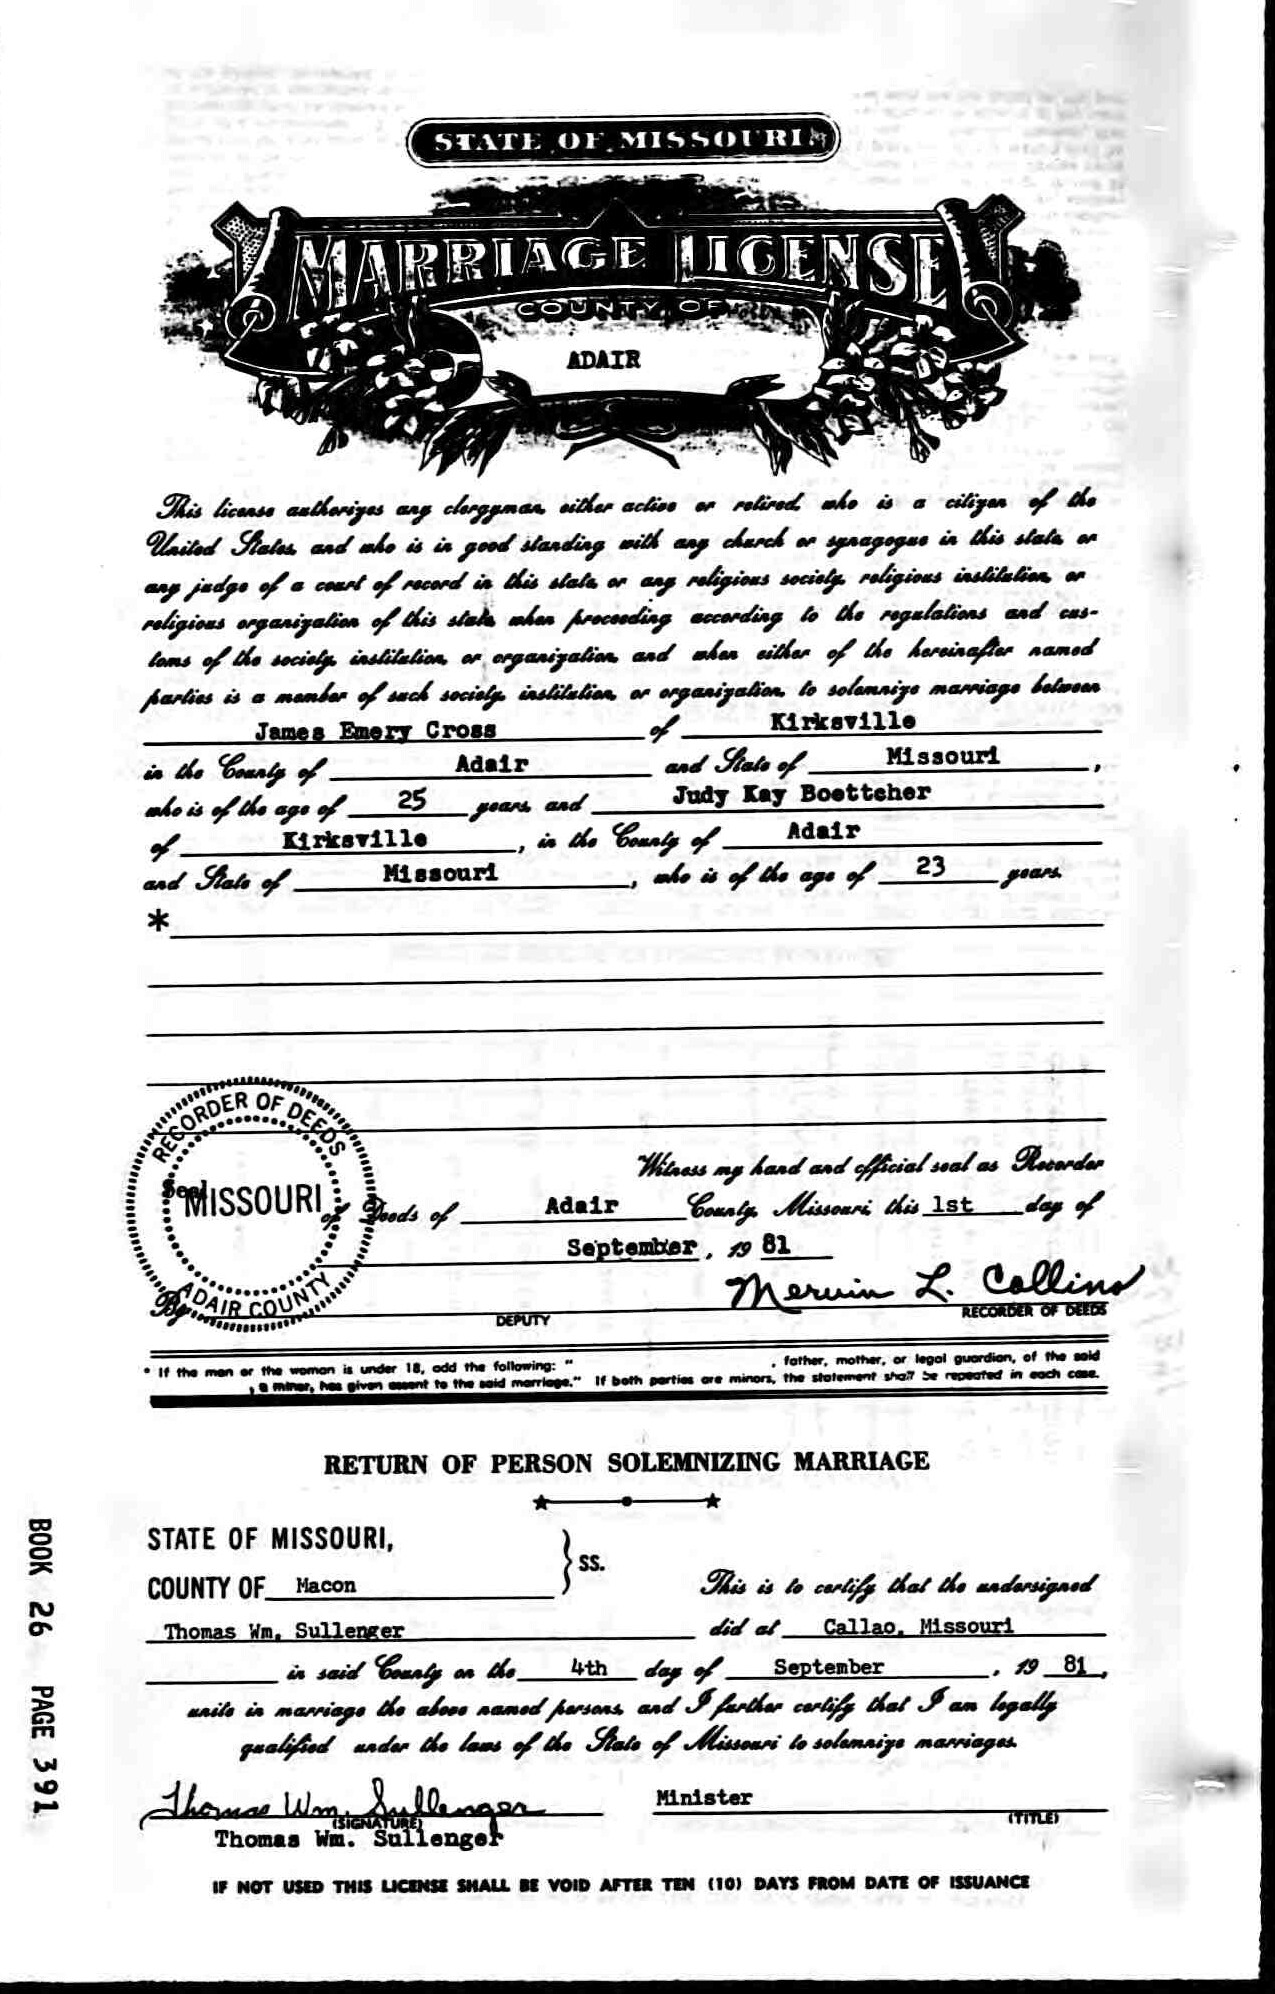 STATE OF MISSOURI
MARRIAGE LICENSE
COUNTY OF
ADAIR
This license authorizes any clergyman, either active or retired, who is a citizen of the
United States, and who is in good standing with any church or synagogue in this state, or
any judge of a court of record in this state, or any religious society, religious institution, or
religious organization of this state, when proceeding according to the regulations and cus-
toms of the society, institution, or organization, and when either of the hereinafter named
parties is a member of such society, institution, or organization, to solemnize marriage between
James Emery Cross of Kirksville
in the County of Adair and State of Missouri,
who is of the age of 25 years, and Judy Kay Boettcher
of Kirksville, in the County of Adair
and State of Missouri, who is of the age of 23 years.
*
RECORDER OF DEEDS
MISSOURI
ADAIR COUNTY
Witness my hand and official seal as Recorder
Seal of Deeds of Adair County, Missouri, this 1st day of
September, 19 81
Mervin L. Collins
By DEPUTY RECORDER OF DEEDS
* If the man or the woman is under 18, add the following: " , father, mother, or legal guardian, of the said
, a minor, has given assent to the said marriage." If both parties are minors, the statement shall be repeated in each case.
RETURN OF PERSON SOLEMNIZING MARRIAGE
STATE OF MISSOURI,
COUNTY OF Macon } SS. This is to certify that the undersigned
Thomas Wm. Sullenger did at Callao, Missouri
in said County on the 4th day of September, 19 81,
unite in marriage the above named persons, and I further certify that I am legally
qualified under the laws of the State of Missouri to solemnize marriages.
Thomas Wm. Sullenger Minister
(SIGNATURE) (TITLE)
Thomas Wm. Sullenger
IF NOT USED THIS LICENSE SHALL BE VOID AFTER TEN (10) DAYS FROM DATE OF ISSUANCE
BOOK 26 PAGE 391